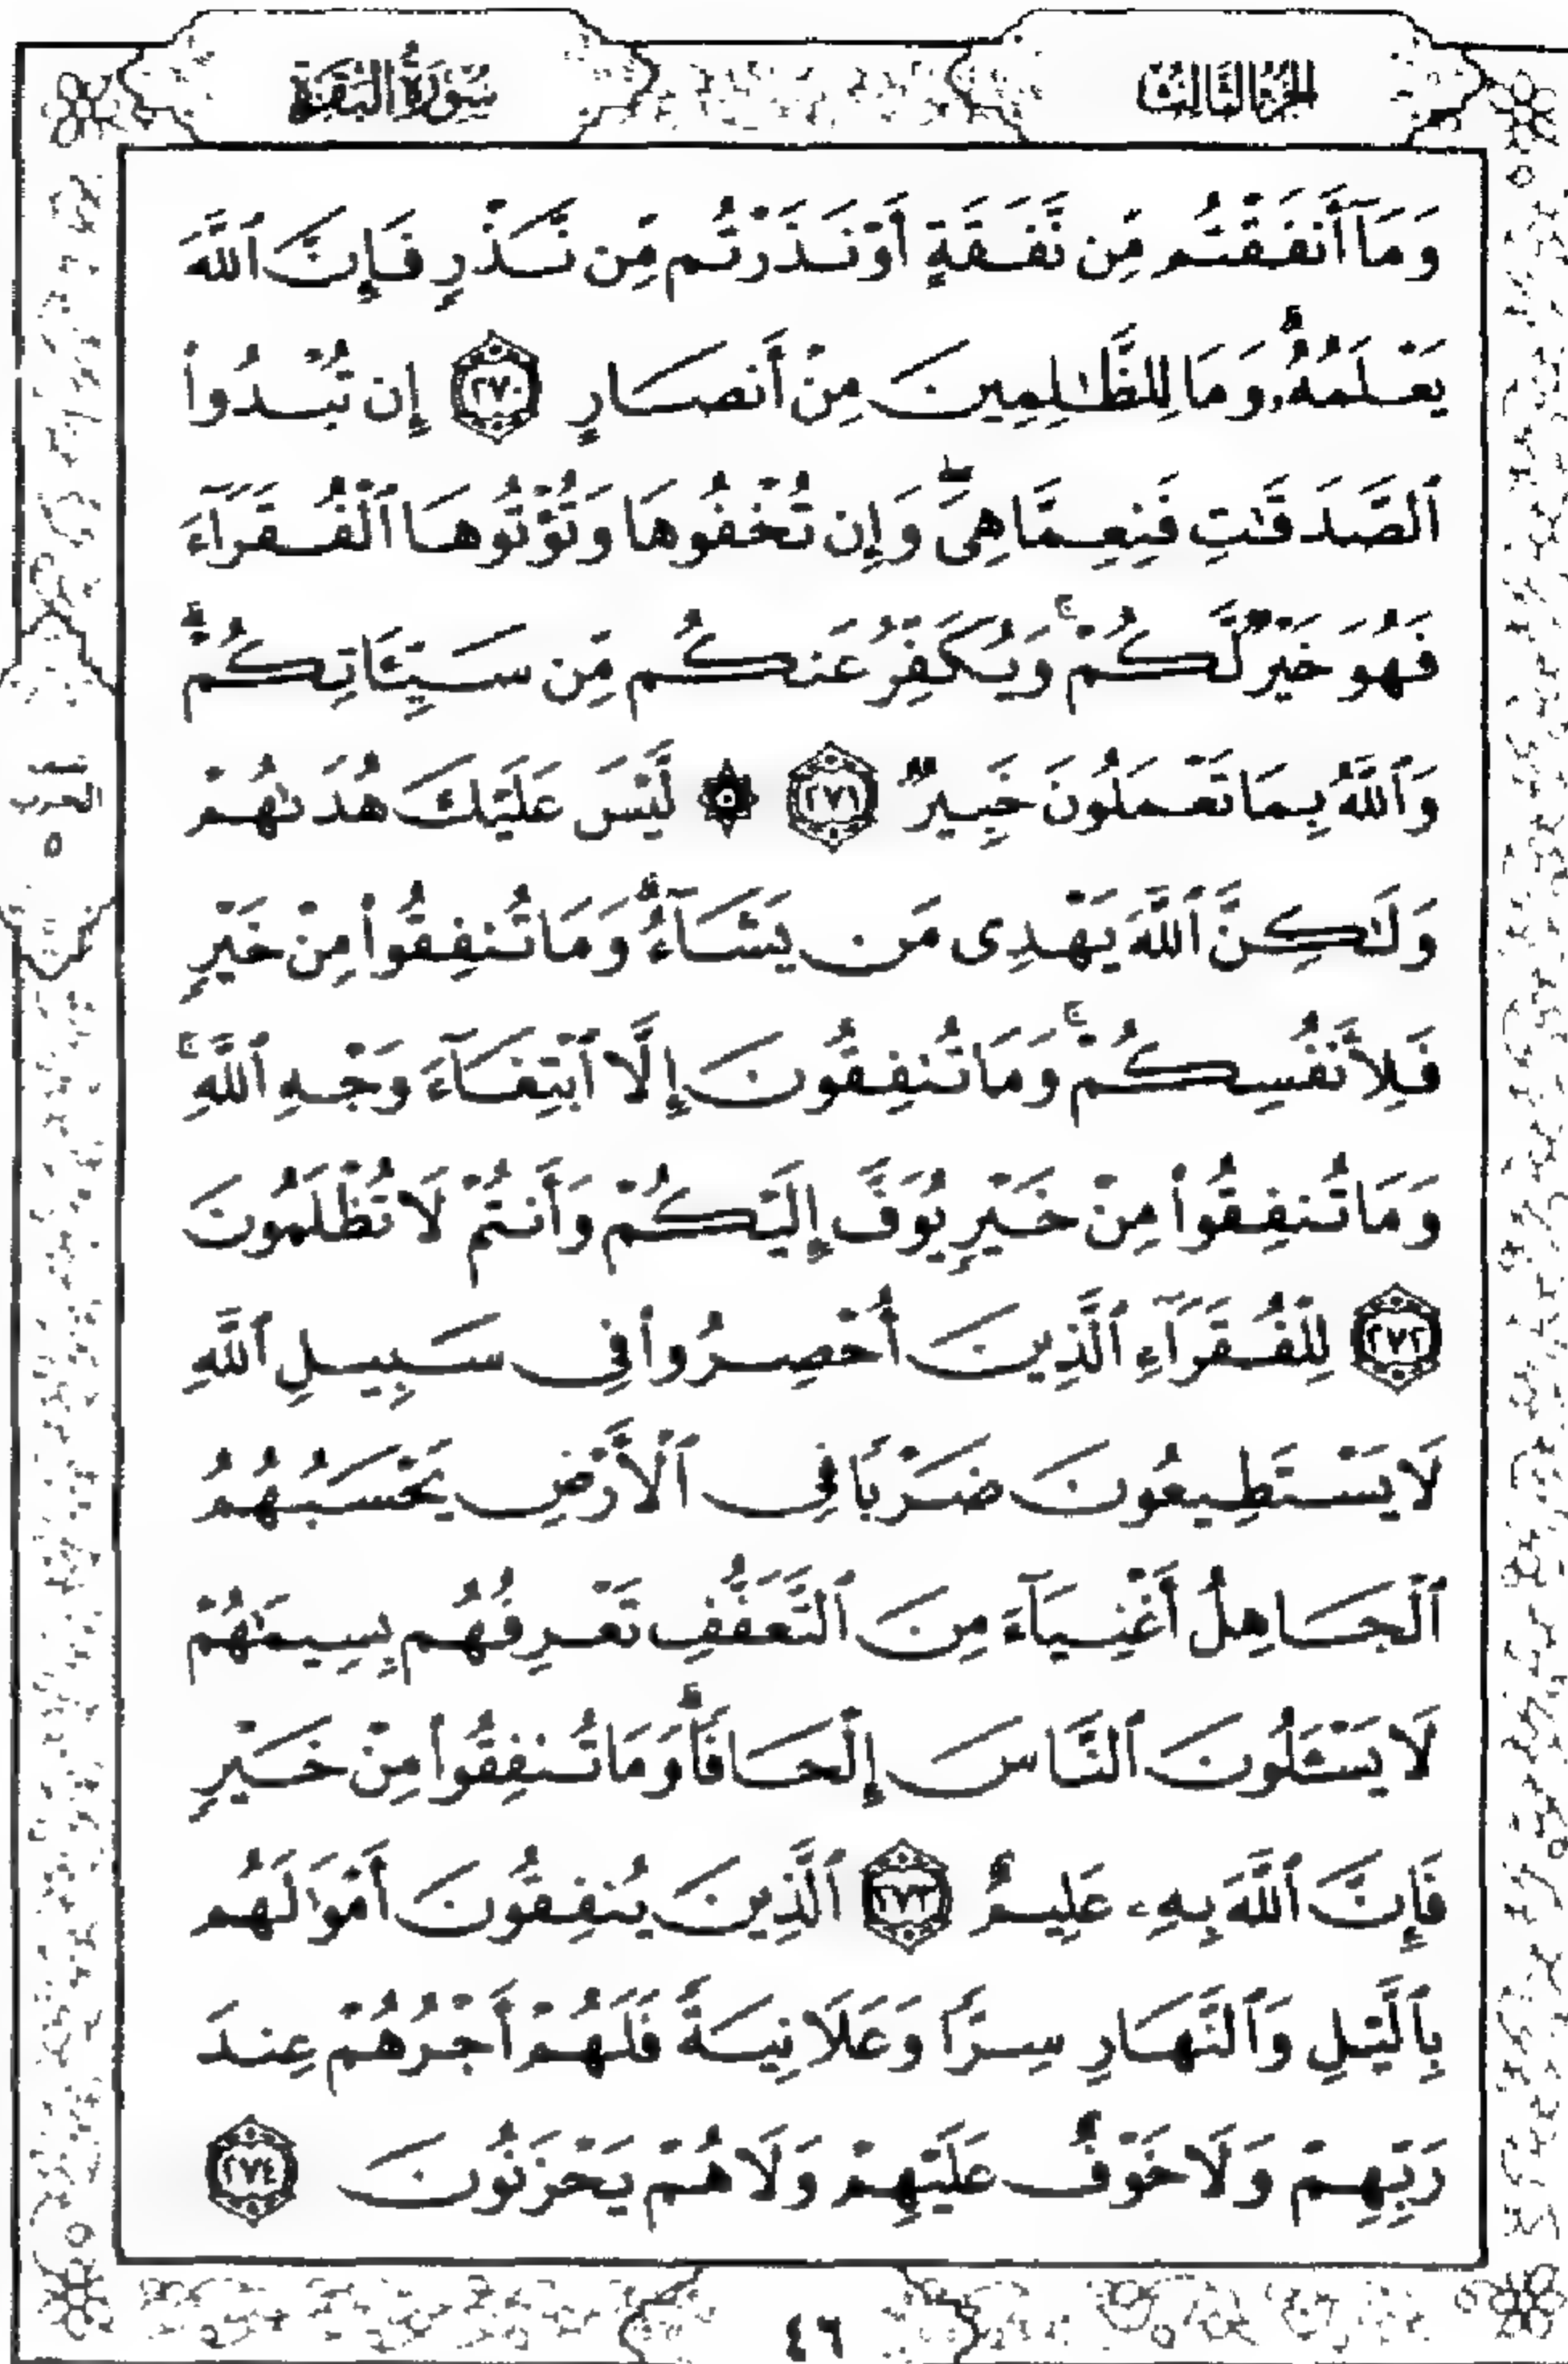 الجزء الثالث
سورة البقرة
وَمَآ أَنفَقْتُم مِّن نَّفَقَةٍ أَوْ نَذَرْتُم مِّن نَّذْرٍ فَإِنَّ ٱللَّهَ
يَعْلَمُهُۥۗ وَمَا لِلظَّٰلِمِينَ مِنْ أَنصَارٍ ٢٧٠ إِن تُبْدُوا۟
ٱلصَّدَقَٰتِ فَنِعِمَّا هِىَۖ وَإِن تُخْفُوهَا وَتُؤْتُوهَا ٱلْفُقَرَآءَ
فَهُوَ خَيْرٌ لَّكُمْۚ وَيُكَفِّرُ عَنكُم مِّن سَيِّـَٔاتِكُمْۗ
وَٱللَّهُ بِمَا تَعْمَلُونَ خَبِيرٌ ٢٧١ ٥ لَّيْسَ عَلَيْكَ هُدَىٰهُمْ
وَلَٰكِنَّ ٱللَّهَ يَهْدِى مَن يَشَآءُۗ وَمَا تُنفِقُوا۟ مِنْ خَيْرٍ
فَلِأَنفُسِكُمْۚ وَمَا تُنفِقُونَ إِلَّا ٱبْتِغَآءَ وَجْهِ ٱللَّهِۚ
وَمَا تُنفِقُوا۟ مِنْ خَيْرٍ يُوَفَّ إِلَيْكُمْ وَأَنتُمْ لَا تُظْلَمُونَ
٢٧٢ لِلْفُقَرَآءِ ٱلَّذِينَ أُحْصِرُوا۟ فِى سَبِيلِ ٱللَّهِ
لَا يَسْتَطِيعُونَ ضَرْبًا فِى ٱلْأَرْضِ يَحْسَبُهُمُ
ٱلْجَاهِلُ أَغْنِيَآءَ مِنَ ٱلتَّعَفُّفِ تَعْرِفُهُم بِسِيمَٰهُمْ
لَا يَسْـَٔلُونَ ٱلنَّاسَ إِلْحَافًاۗ وَمَا تُنفِقُوا۟ مِنْ خَيْرٍ
فَإِنَّ ٱللَّهَ بِهِۦ عَلِيمٌ ٢٧٣ ٱلَّذِينَ يُنفِقُونَ أَمْوَٰلَهُم
بِٱلَّيْلِ وَٱلنَّهَارِ سِرًّا وَعَلَانِيَةً فَلَهُمْ أَجْرُهُمْ عِندَ
رَبِّهِمْ وَلَا خَوْفٌ عَلَيْهِمْ وَلَا هُمْ يَحْزَنُونَ ٢٧٤
الحزب
٥
٤٦